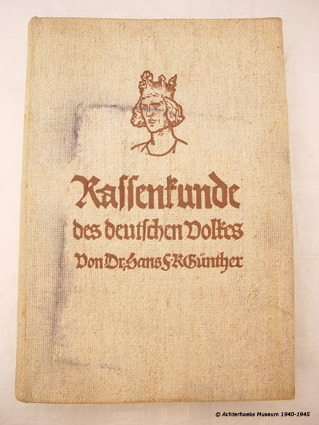 Rassenkunde
des deutschen Volkes
Von Dr. Hans F. K. Günther
© Achterhoeks Museum 1940-1945